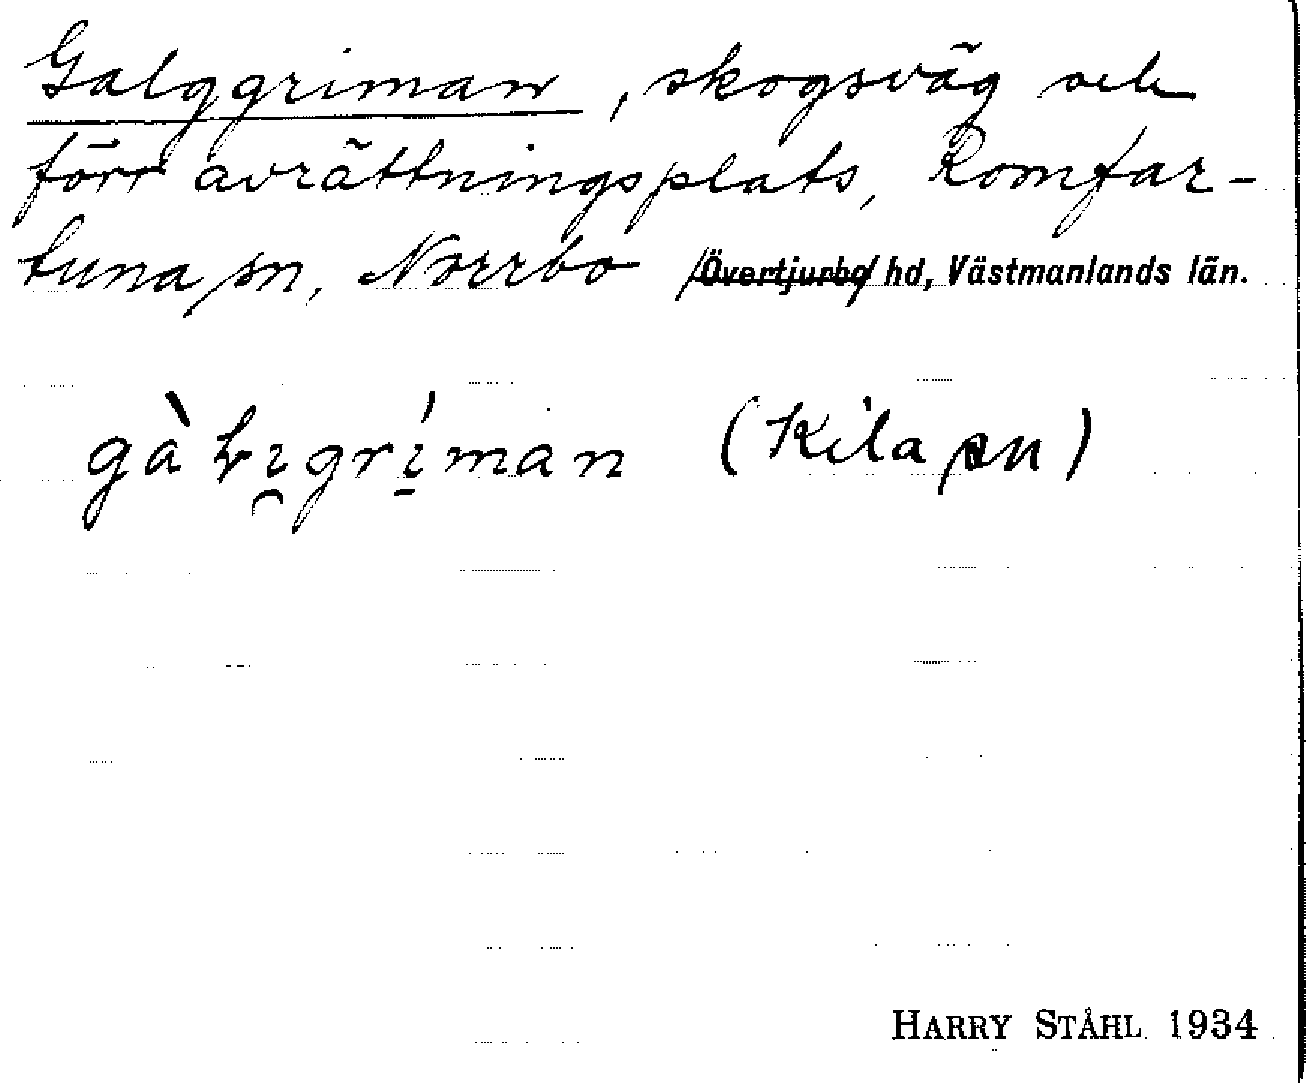 Galggriman, skogsväg och
förr avrättningsplats, Romfar-
tuna sn, Norrbo /Övertjurbo/ hd, Västmanlands län.
(Kila sn)
HARRY STÅHL 1934